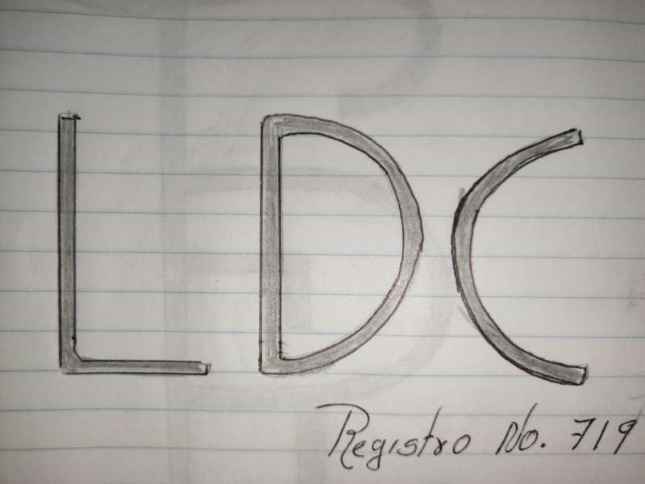 LDC
Registro No. 719